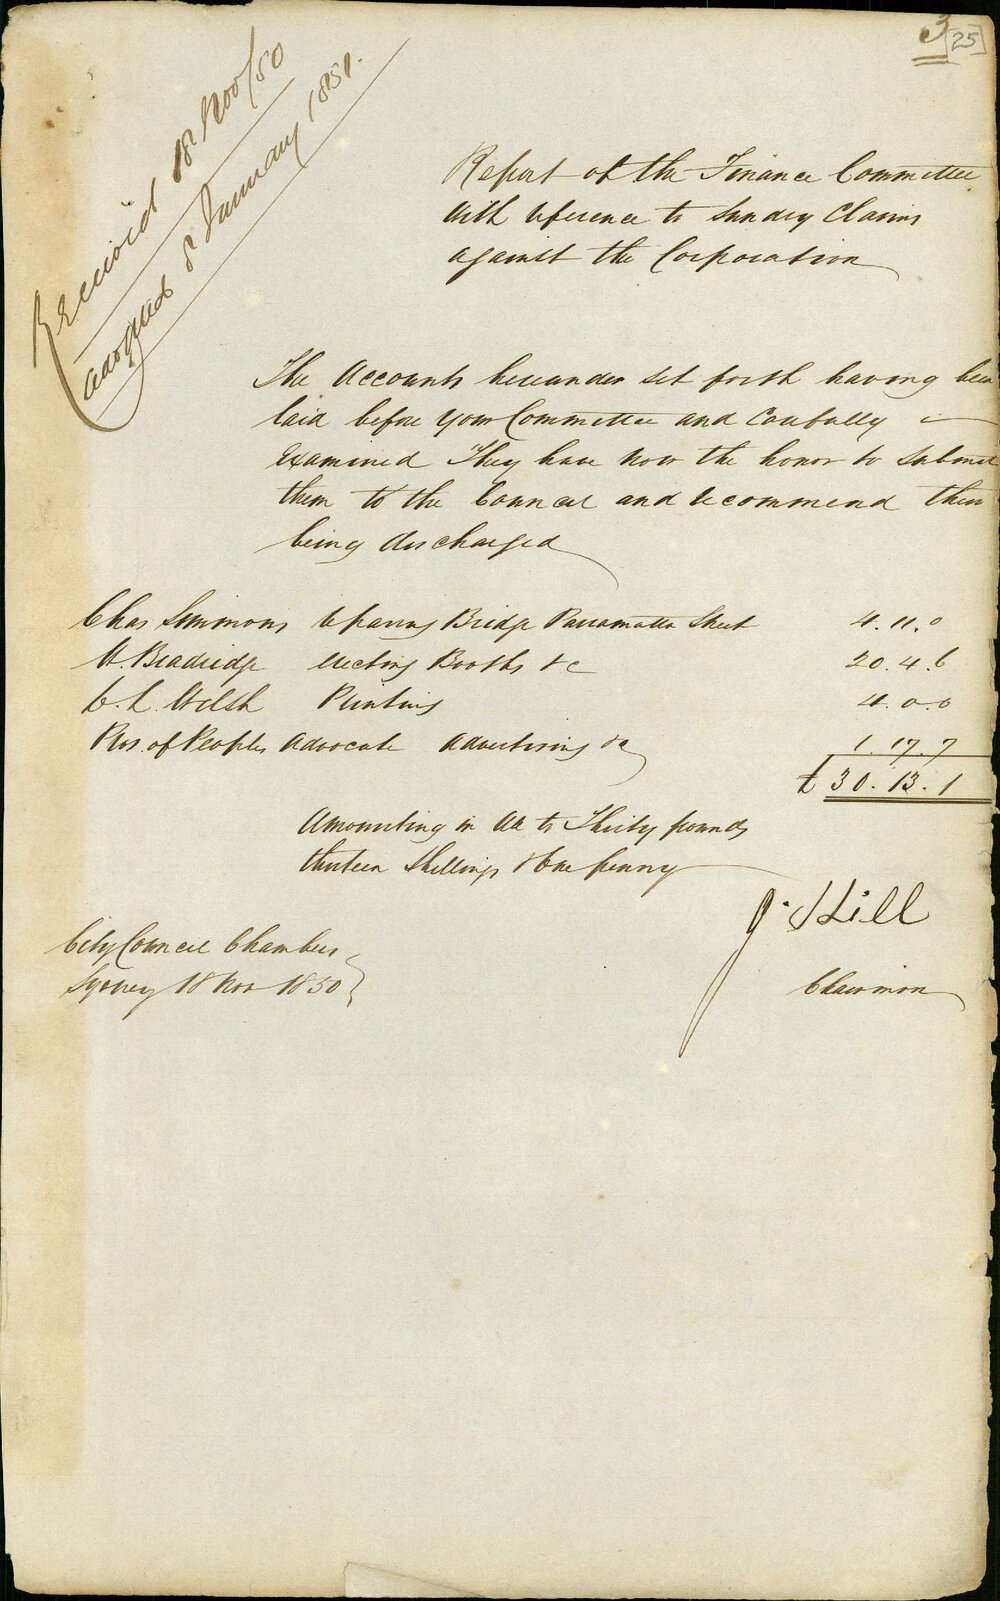 3
[25]
Received 18 Nov/50
adopted 8 January 1851.
Report of the Finance Committee
with reference to sundry Claims
against the Corporation
The Accounts hereunder set forth having been
laid before your Committee and Carefully
Examined They have now the honor to Submit
them to the Council and recommend their
being discharged
Chas Simmons repairing Bridge Parramatta Street 4.11.0
W. Bradridge erecting Booths &c 20.4.6
C. L. Welsh Printing 4.0.0
Prs. of Peoples Advocate Advertising &c 1.17.7
£30.13.1
Amounting in all to Thirty pounds
thirteen Shillings & One penny
J. Hill
Chairman
City Council Chambers
Sydney 18 Nov 1850